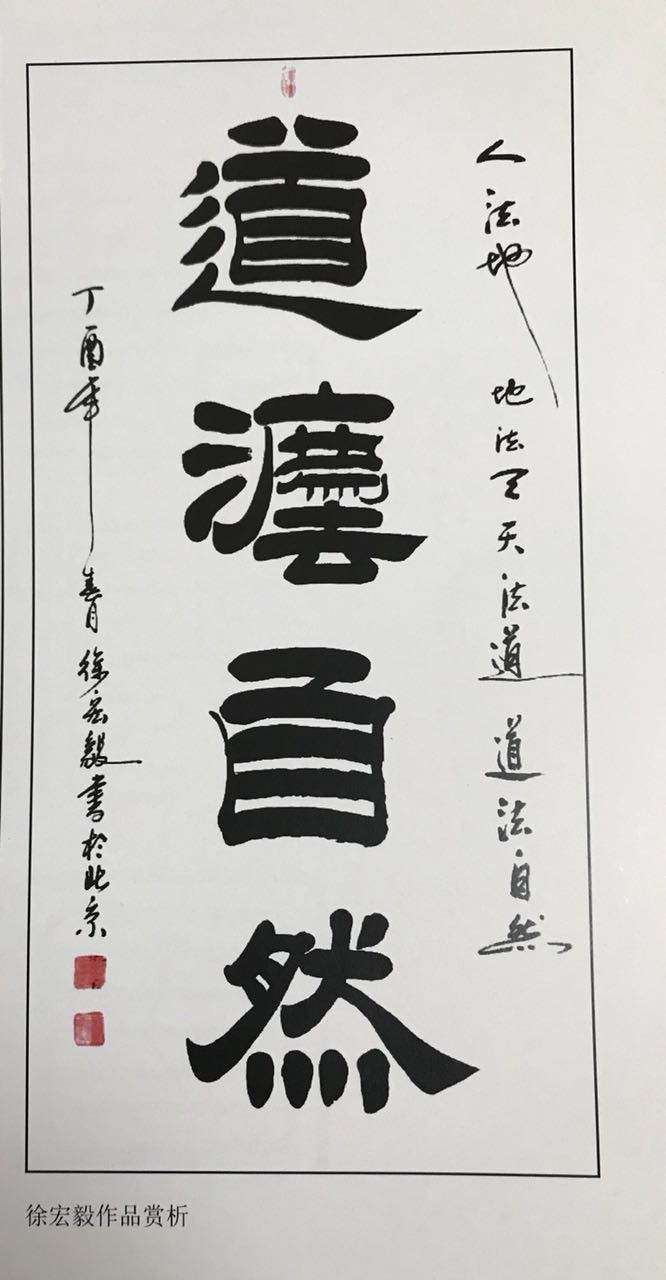 人法地 地法天天法道 道法自然
道灋自然
丁酉年春月徐宏毅書於北京
徐宏毅作品赏析